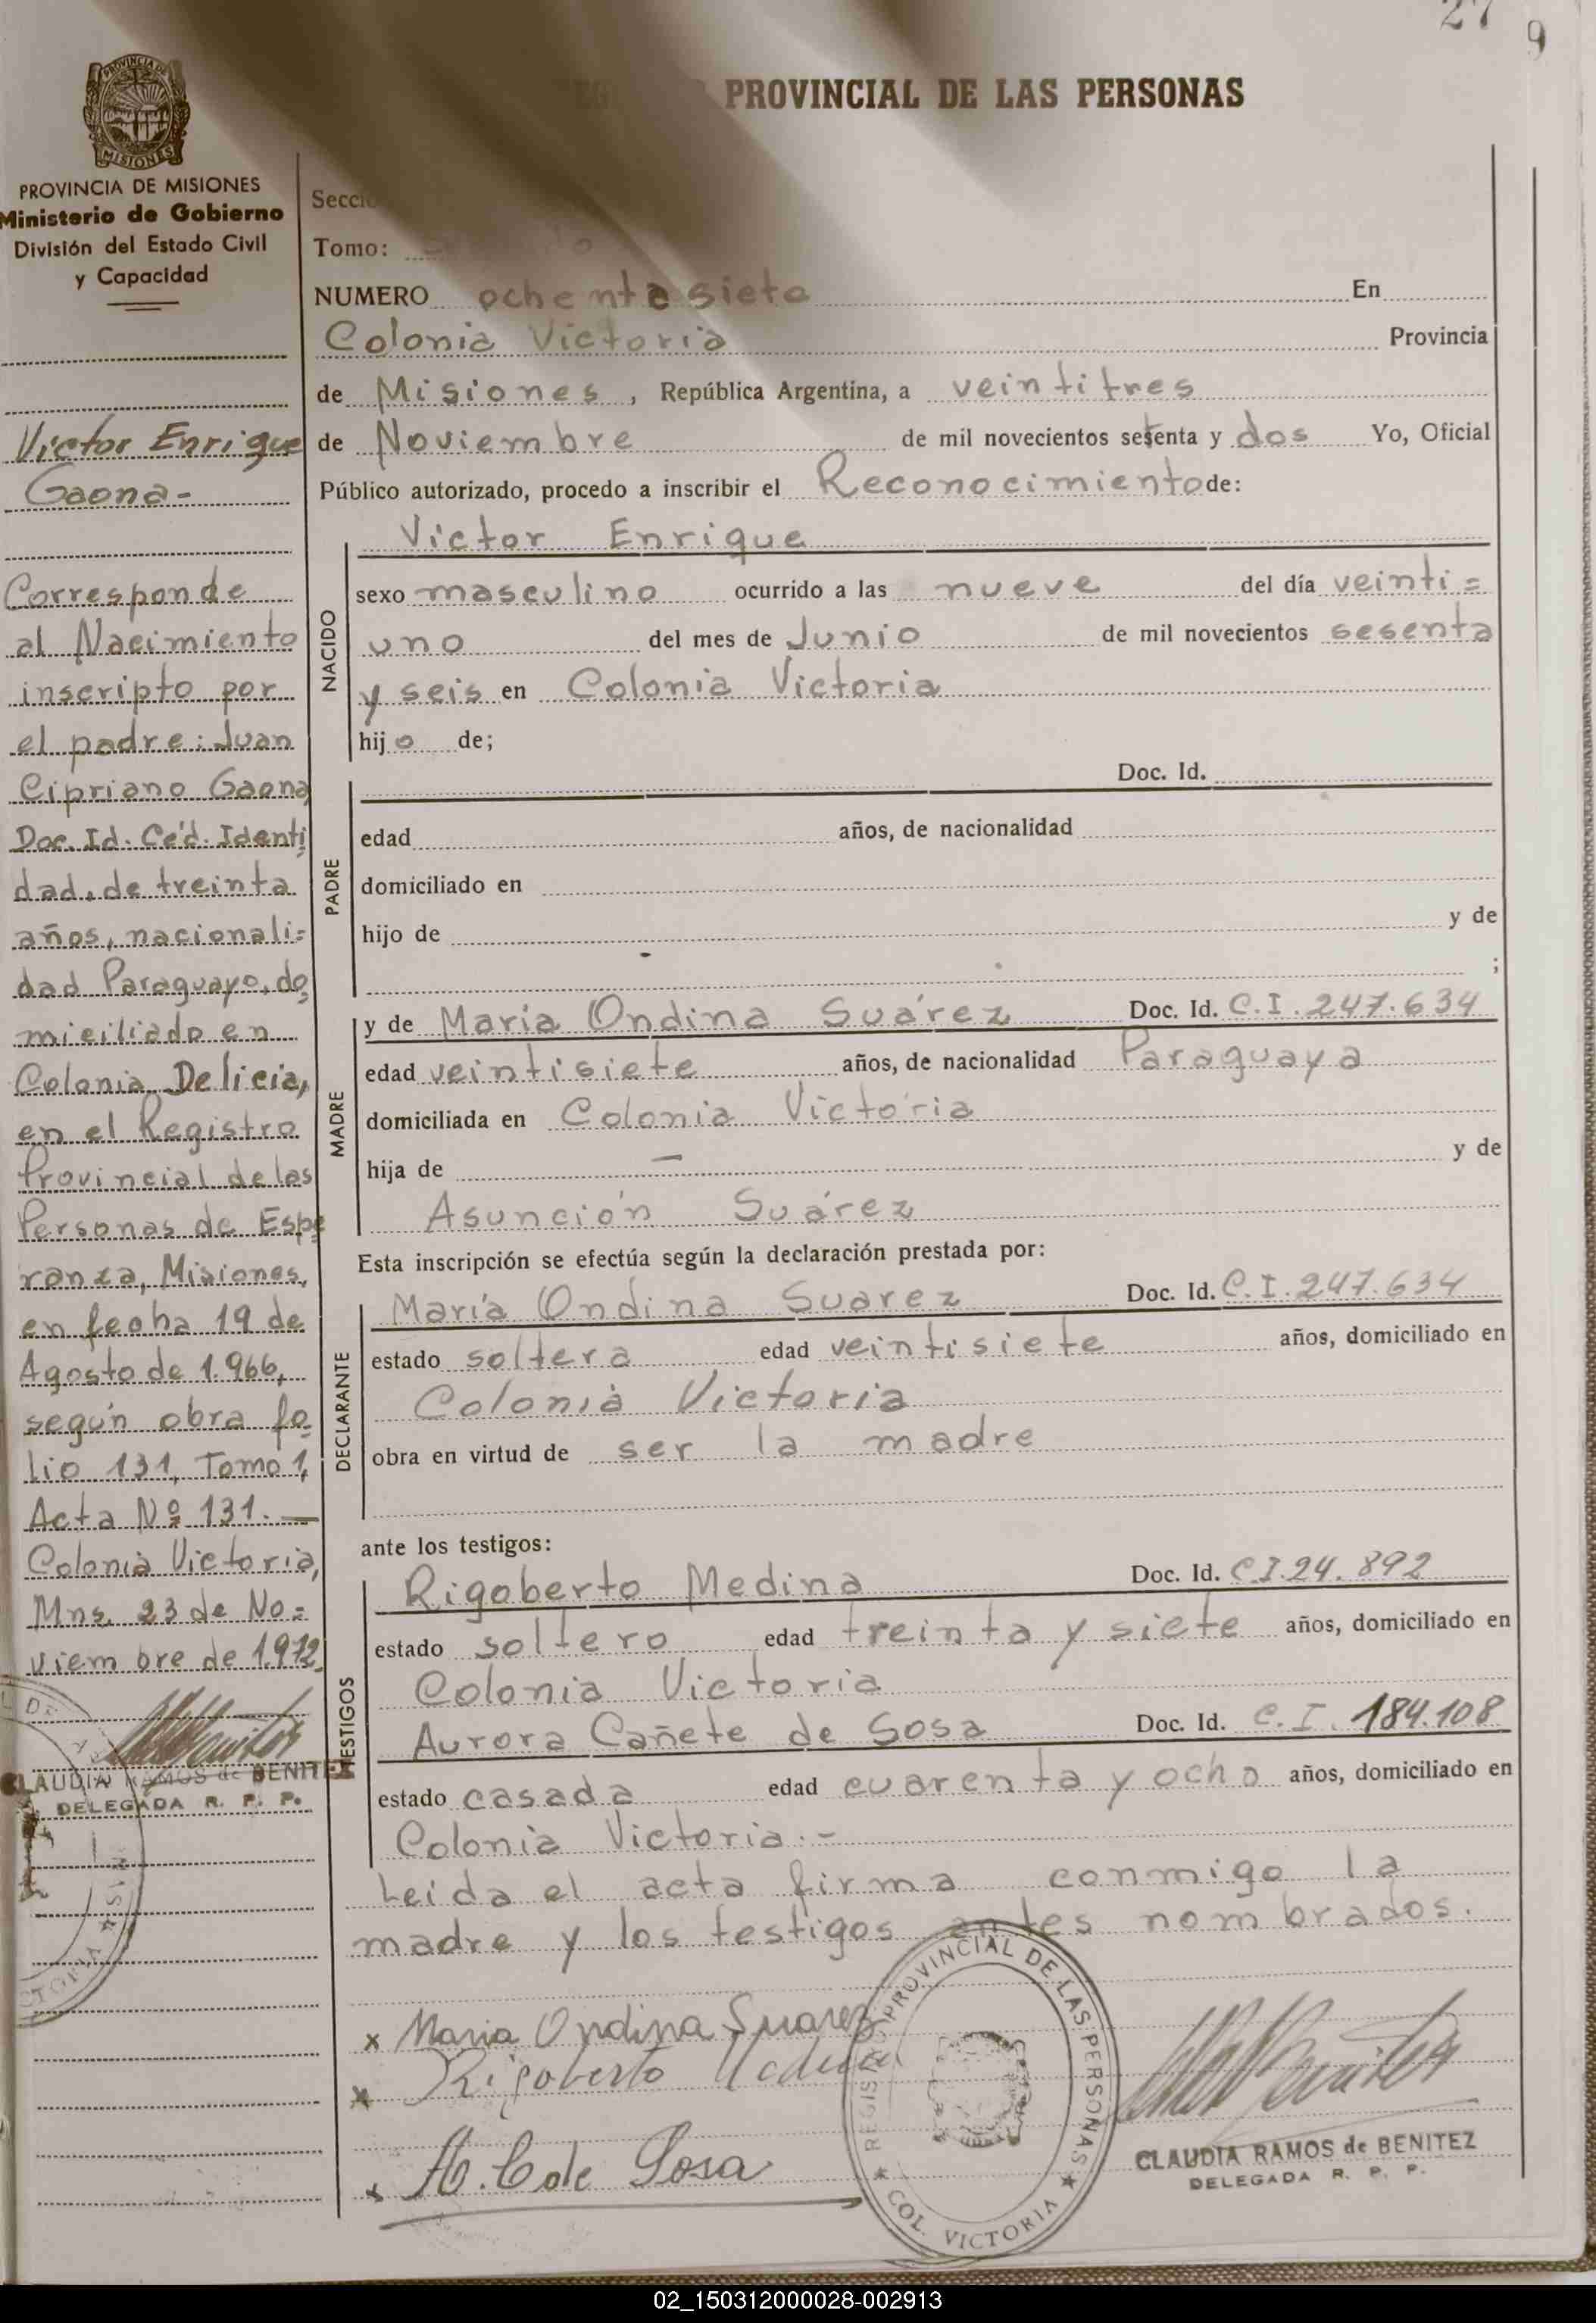 27 9
PROVINCIAL DE LAS PERSONAS
MISIONES
PROVINCIA DE MISIONES
Ministerio de Gobierno
División del Estado Civil
y Capacidad
Victor Enrique
Gaona-
Corresponde
al Nacimiento
inscripto por
el padre: Juan
Cipriano Gaona
Doc. Id. Céd. Identi
dad, de treinta
años, nacionali=
dad Paraguayo, do
miciliado en
Colonia Delicia,
en el Registro
Provincial de las
Personas de Espe
ranza, Misiones,
en fecha 19 de
Agosto de 1.966,
según obra fo
lio 131, Tomo 1,
Acta Nº 131.—
Colonia Victoria,
Mns. 23 de No=
viembre de 1.972.
CLAUDIA RAMOS de BENITEZ
DELEGADA R. P. P.
Tomo:
NUMERO ochenta siete En
Colonia Victoria Provincia
de Misiones, República Argentina, a veintitres
de Noviembre de mil novecientos setenta y dos Yo, Oficial
Público autorizado, procedo a inscribir el Reconocimiento de:
NACIDO
Victor Enrique
sexo masculino ocurrido a las nueve del día veinti=
uno del mes de Junio de mil novecientos sesenta
y seis en Colonia Victoria
hijo de;
PADRE
Doc. Id.
edad años, de nacionalidad
domiciliado en
hijo de - y de
;
MADRE
y de María Ondina Suárez Doc. Id. C.I. 247.634
edad veintisiete años, de nacionalidad Paraguaya
domiciliada en Colonia Victoria
hija de — y de
Asunción Suárez
Esta inscripción se efectúa según la declaración prestada por:
DECLARANTE
María Ondina Suarez Doc. Id. C.I. 247.634
estado soltera edad veintisiete años, domiciliado en
Colonia Victoria
obra en virtud de ser la madre
ante los testigos:
TESTIGOS
Rigoberto Medina Doc. Id. C.I. 24.892
estado soltero edad treinta y siete años, domiciliado en
Colonia Victoria
Aurora Cañete de Sosa Doc. Id. C.I. 184.108
estado casada edad cuarenta y ocho años, domiciliado en
Colonia Victoria.-
Leida el acta firma conmigo la
madre y los testigos antes nombrados.
x Maria Ondina Suarez
x Rigoberto Medina
x A. C de Sosa
REGISTRO PROVINCIAL DE LAS PERSONAS
COL. VICTORIA
CLAUDIA RAMOS de BENITEZ
DELEGADA R. P. P.
02_150312000028-002913